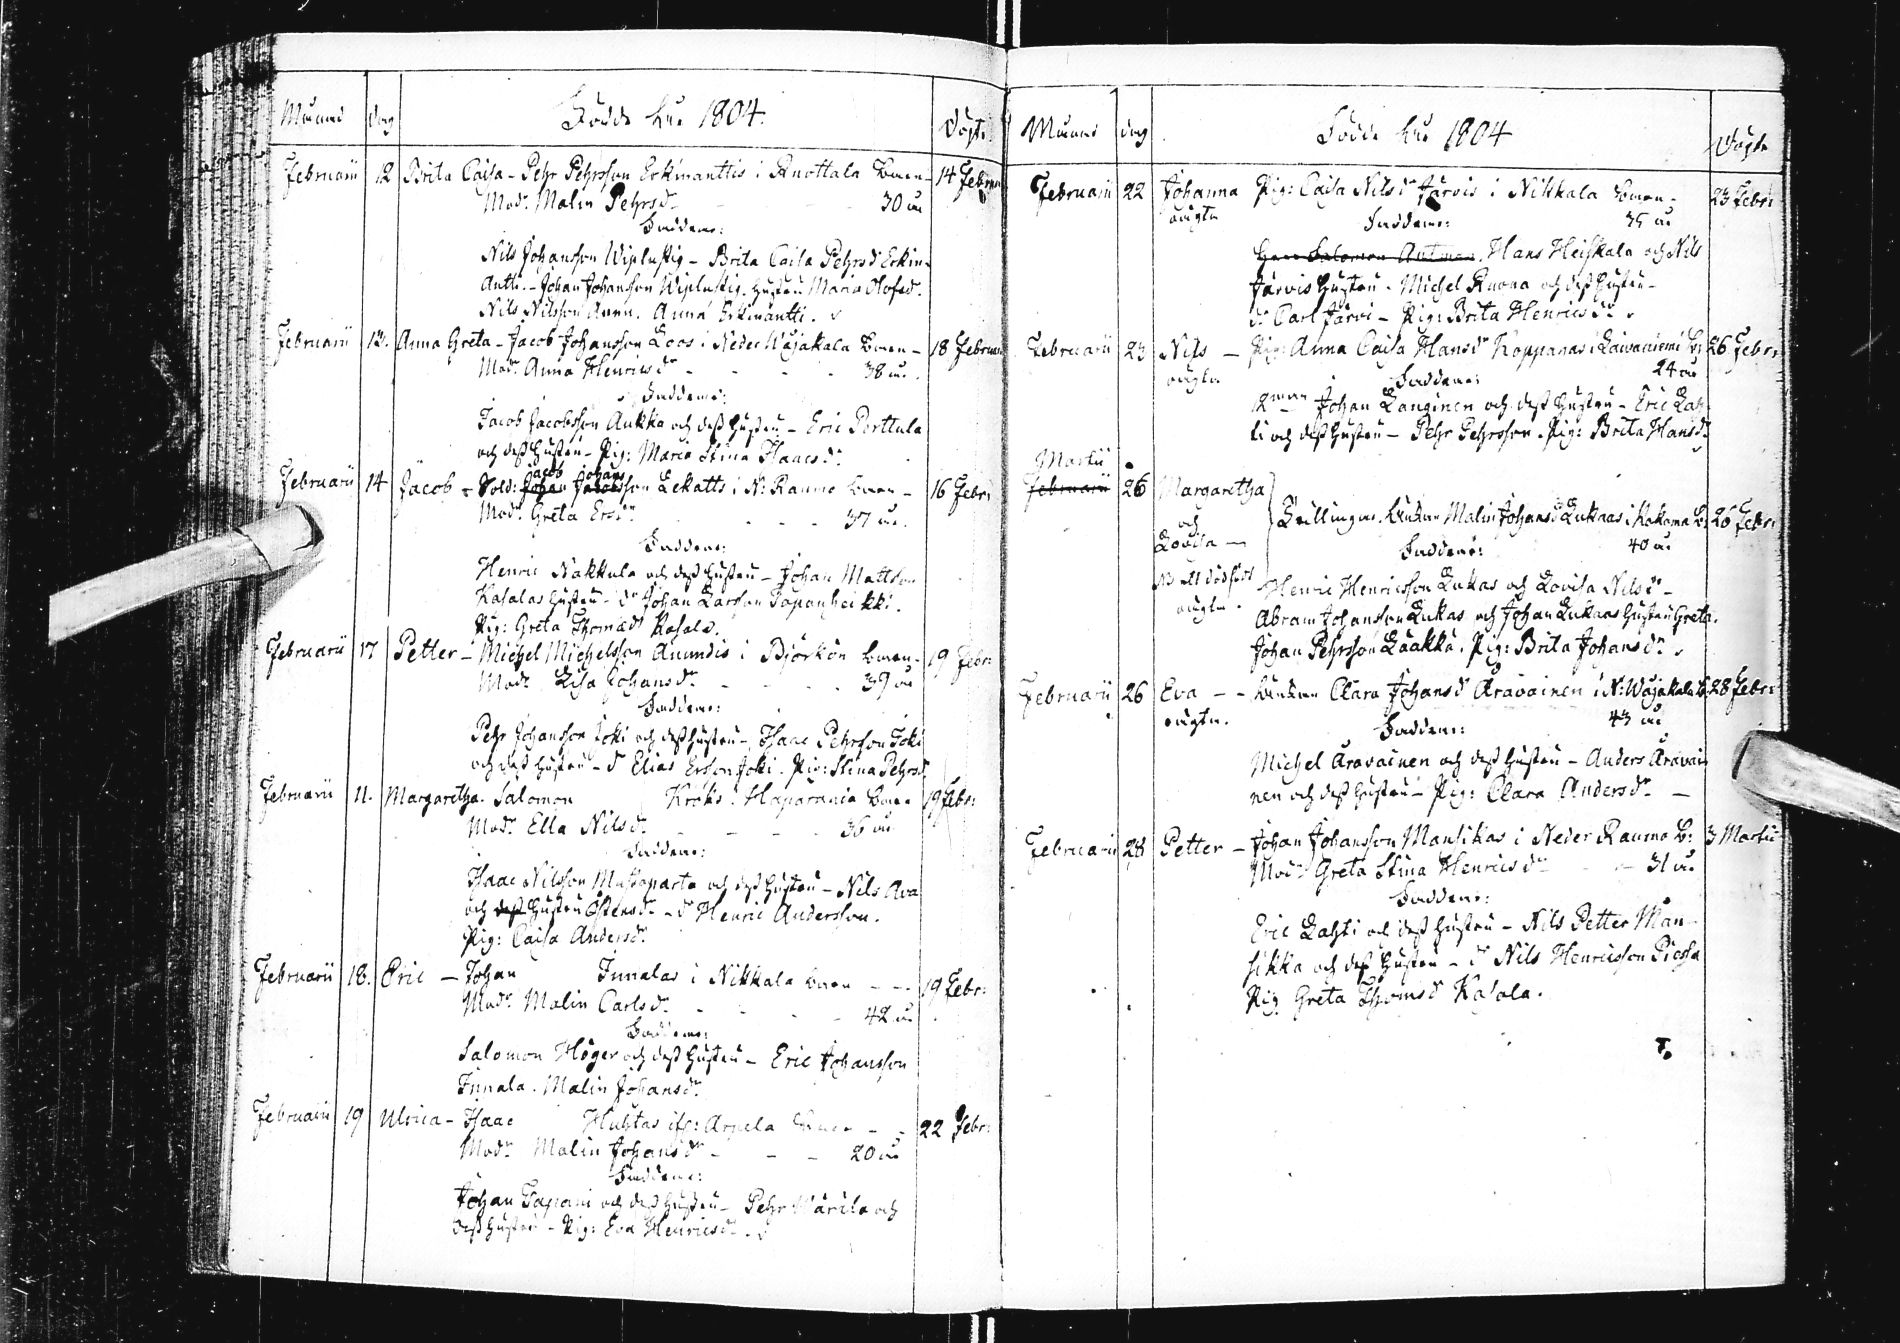 Månad dag Födde åhr 1804. Döpte
Februarii 12 Brita Caisa - Pehr Pehrsson Erkinanttis i Knottala Bÿen - 14 Februa
Modr. Malin Pehrsdr. - - - 30 år
Faddrar:
Nils Johansson - Brita Caisa Pehrsdr Erkin-
Antti. - Johan Johansson hustru Maria Olofsd.
Nils Nilsson Anna Erkinantti.
Februarii 13. Anna Greta - Jacob Johansson Loos i Neder Wojakala Bÿen - 18 Februa
Modr. Anna Henricsdr - - - 38 år.
Faddrar:
Jacob Jacobsson Aukka och dess hustru - Eric Perttula
och dess hustru - Pig: Maria Stina Isacsdr.
Februarii 14 Jacob - Sold: Jacob Johansson Lekatts i N: Raumo Bÿen - 16 Febr:
Modr. Greta Ersdr. - - - 37 år.
Faddrar:
Henric Nakkula och dess hustru - Johan Mattsson
Kasalas hustru - dr Johan Larsson Tapanheikki.
Pig: Greta Thomædr Kasala.
Februarii 17 Petter - Michel Michelsson Anundis i Björkön Bÿen - 19 Febr:
Modr. Lisa Johansdr. - - - 39 år
Faddrar:
Pehr Johansson Joki och dess hustru - Isaac Pehrsson Joki
och dess hustru - d Elias Ersson Joki. Pig: Stina Pehrsd
Februarii 11. Margaretha. Salomon Kröks i Haparanda Bÿen 19 Febr:
Modr. Ella Nilsdr. - - - 36 år
Faddrar:
Isaac Nilsson Mustaparta och dess hustru - Nils Ava
och dess hustru Östensdr. - dr Henric Andersson.
Pig: Caisa Andersdr.
Februarii 18. Eric - Johan Innalas i Nikkala Bÿen - - 19 Febr:
Modr. Malin Carlsdr. - - - 42 år
Faddrar:
Salomon Höger och dess hustru - Eric Johansson
Innala. Malin Johansdr
Februarii 19 Ulrica - Isaac Huhtas Bÿen - - 22 Febr:
Modr. Malin Johansdr - - - 20 år
Faddrar:
Johan Tapani och dess hustru - Pehr och
dess hustru - Pig: Eva Henricsdr.
Månad dag Födde åhr 1804 Döpte
Februarii 22 Johanna Pig: Caisa Nilsdr Järvis i Nikkala Bÿen - 23 Febr:
oägta Faddrar: 35 år
Hans Heiskala och Nils
Järvis hustru. Michel Ruona och dess hustru -
dr Carl Järvi - Pig: Brita Henricsdr.
Februarii 23 Nils - Pig: Anna Caisa Hansdr Koppanas i Laivaniemi B: 26 Febr:
oägta Faddrar: 24 år
12man Johan Langinen och dess hustru - Eric Lah-
ti och dess hustru - Pehr Pehrsson. Pig: Brita Hansdr
Martii
Februarii 26 Margaretha
och Tvillingar. Änkan Malin Johansdr Lukaas i Kakama B: 26 Febr:
Lovisa - Faddrar: 40 år
oägta. Henric Henricsson Lukas och Lovisa Nilsdr -
Abram Johansson Lukas och Johan Lukaas hustru Greta.
Johan Pehrsson Laakka. Pig: Brita Johansdr.
Februarii 26 Eva - - Änkan Clara Johansdr Aravainen i N: Wojakala B. 28 Febr:
oägta. Faddrar: 43 år
Michel Aravainen och dess hustru - Anders Aravai
nen och dess hustru - Pig: Clara Andersdr -
Februarii 28 Petter - Johan Johansson Mansikas i Neder Raumo B: 3 Martii
Modr Greta Stina Henricsdr - - 31 år
Faddrar:
Eric Lahti och dess hustru - Nils Petter Man-
sikka och dess hustru - dr Nils Henricsson
Pig: Greta Thomsdr Kasala.